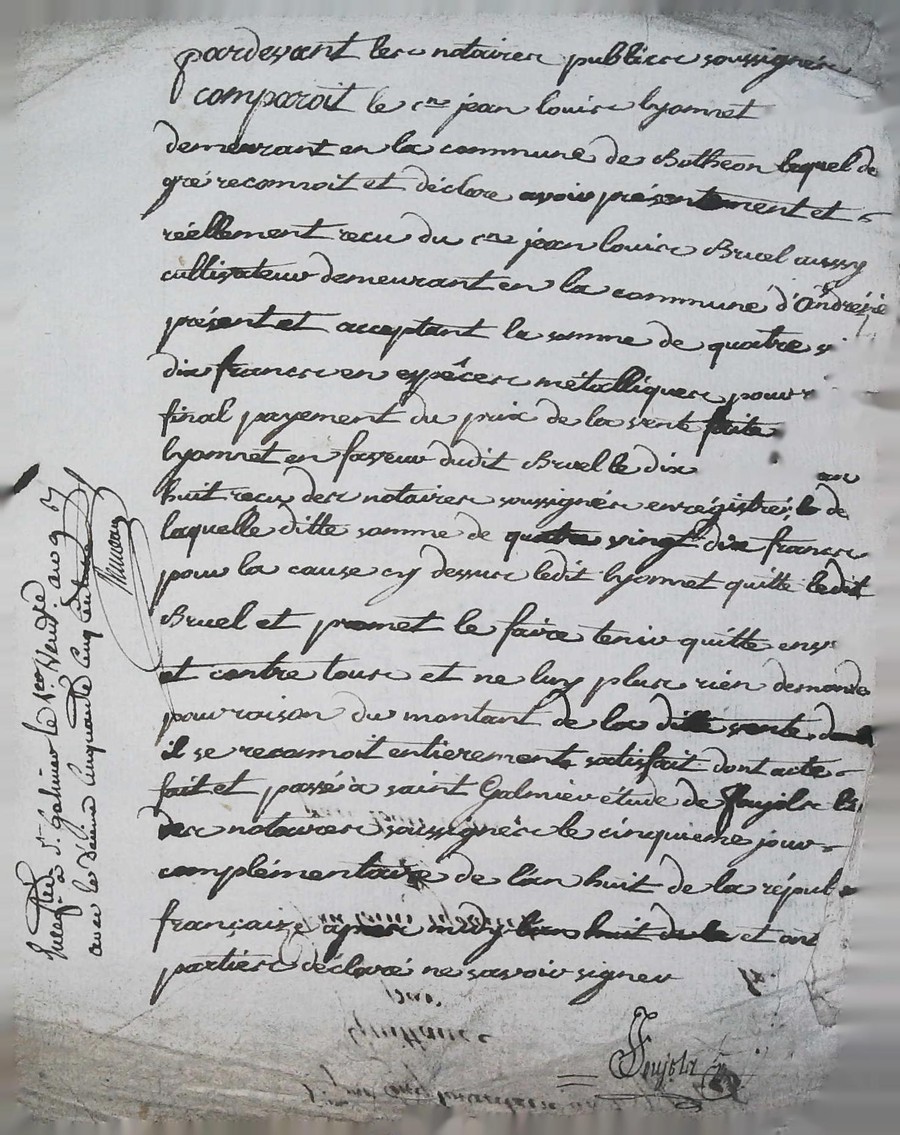 pardevant les notaires publics soussignés
comparoit le cen jean louis lyonnet
demeurant en la commune de Botheon lequel de
gré reconnoit et déclare avoir présentement et
réellement recu du cen jean louis Bruel aussy
cultivateur demeurant en la commune d'Andrézie
présent et acceptant la somme de quatre
dix francs en espêces métalliques pour
final payement du prix de la vente faite
lyonnet en faveur dudit Bruel le dix
huit recu des notaires soussignés enregistré le de
laquelle ditte somme de quatre vingt dix francs
pour la cause cy dessus ledit lyonnet quitte ledit
Bruel et promet le faire tenir quitte
et contre tous et ne luy plus rien demande
pour raison du montant de la ditte vente
il se reconnoit entierement satisfait dont acte
fait et passé à saint Galmier étude de
des notaires soussignés le cinquieme jour
complémentaire de l'an huit de la
française après midy et ont
parties déclaré ne savoir signer
quittance
Enregtré à St. Galmier le 1er Vend. an 9